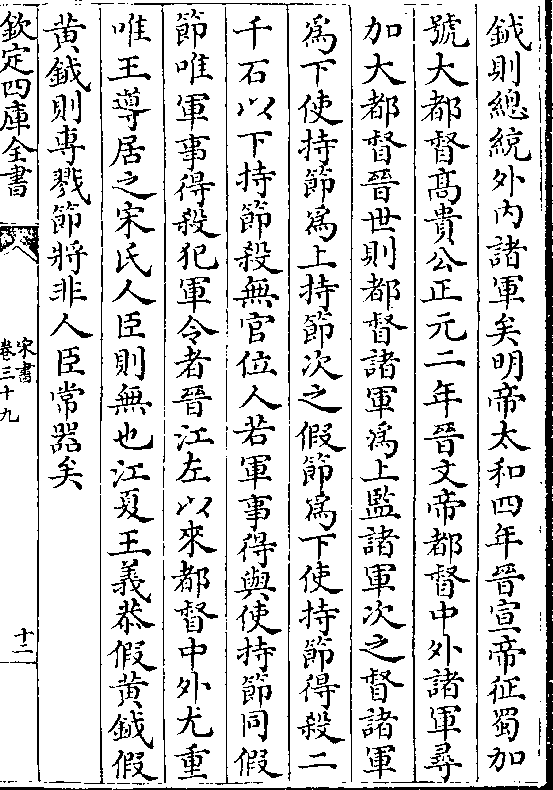 鉞則總統外内諸軍矣明帝太和四年晉宣帝征蜀加
號大都督髙貴公正元二年晉文帝都督中外諸軍尋
加大都督晉世則都督諸軍為上監諸軍次之督諸軍
為下使持節為上持節次之假節為下使持節得殺二
千石以下持節殺無官位人若軍事得與使持節同假
節唯軍事得殺犯軍令者晉江左以來都督中外尤重
唯王導居之宋氏人臣則無也江夏王義恭假黄鉞假
黄鉞則専戮節將非人臣常器矣
欽定四庫全書
宋書
卷三十九
十二